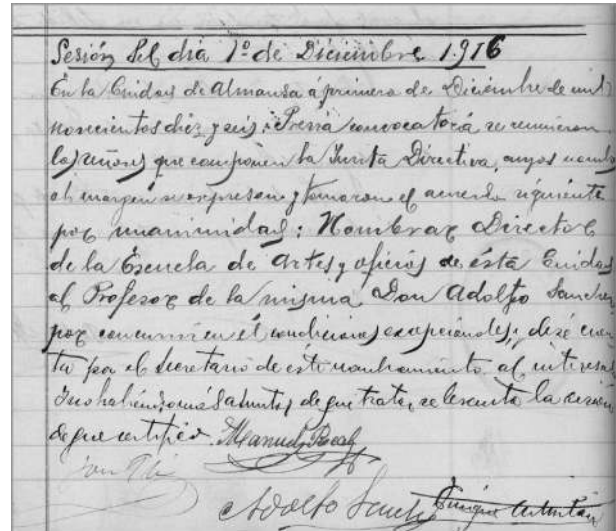 Sesión del dia 1º de Diciembre 1916
En la Ciudad de Almansa á primero de Diciembre de mil
novecientos diez y seis: Previa convocatoria se reunieron
los señores que componen la Junta Directiva, cuyos nombres
al margen se expresan y tomaron el acuerdo siguiente
por unanimidad: Nombrar Director
de la Escuela de Artes y oficios de ésta Ciudad
al Profesor de la misma Don Adolfo Sanchez
por concurrir en él condiciones excepcionales; dese cuen-
ta por el Secretario de este nombramiento al interesado
Y no habiendo más asuntos de que tratar, se levanta la sesion
de que certifico. Manuel
Adolfo Sanchez Enrique